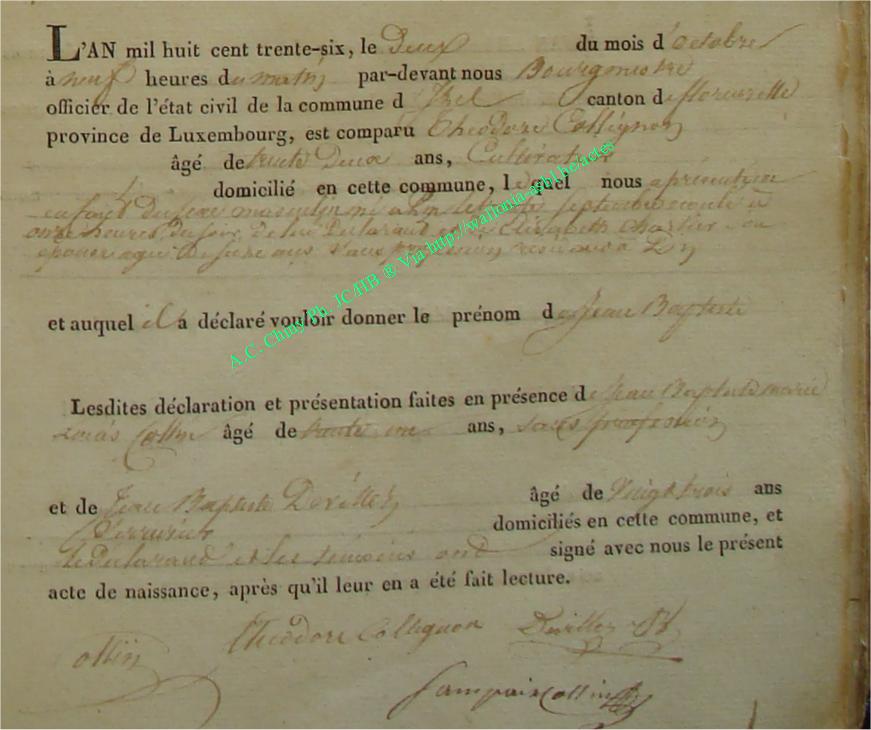 L'AN mil huit cent trente-six, le Deux du mois d'octobre
à neuf heures du matin par-devant nous Bourgmestre
officier de l'état civil de la commune d'Izel canton de florenville
province de Luxembourg, est comparu Theodore Collignon
âgé de trente Deux ans, Cultivateur
domicilié en cette commune, lequel nous a présenté un
enfant du sexe masculin né à septembre à
onze heures du soir, de lui Declarant et Elisabeth Charlier son
épouse agée de ans Sans profession
et auquel il a déclaré vouloir donner le prénom de Jean Baptiste
Lesdites déclaration et présentation faites en présence de Jean Baptiste marie
Collin âgé de trente un ans, sans profession
et de Jean Baptiste Devillez âgé de Vingt trois ans
Serrurier domiciliés en cette commune, et
le Declarant et les témoins ont signé avec nous le présent
acte de naissance, après qu'il leur en a été fait lecture.
Theodore Collignon Devillez
Collin
A.C. Chiny Ph. JC/HB @ Via http://wallonia-asbl.be/actes